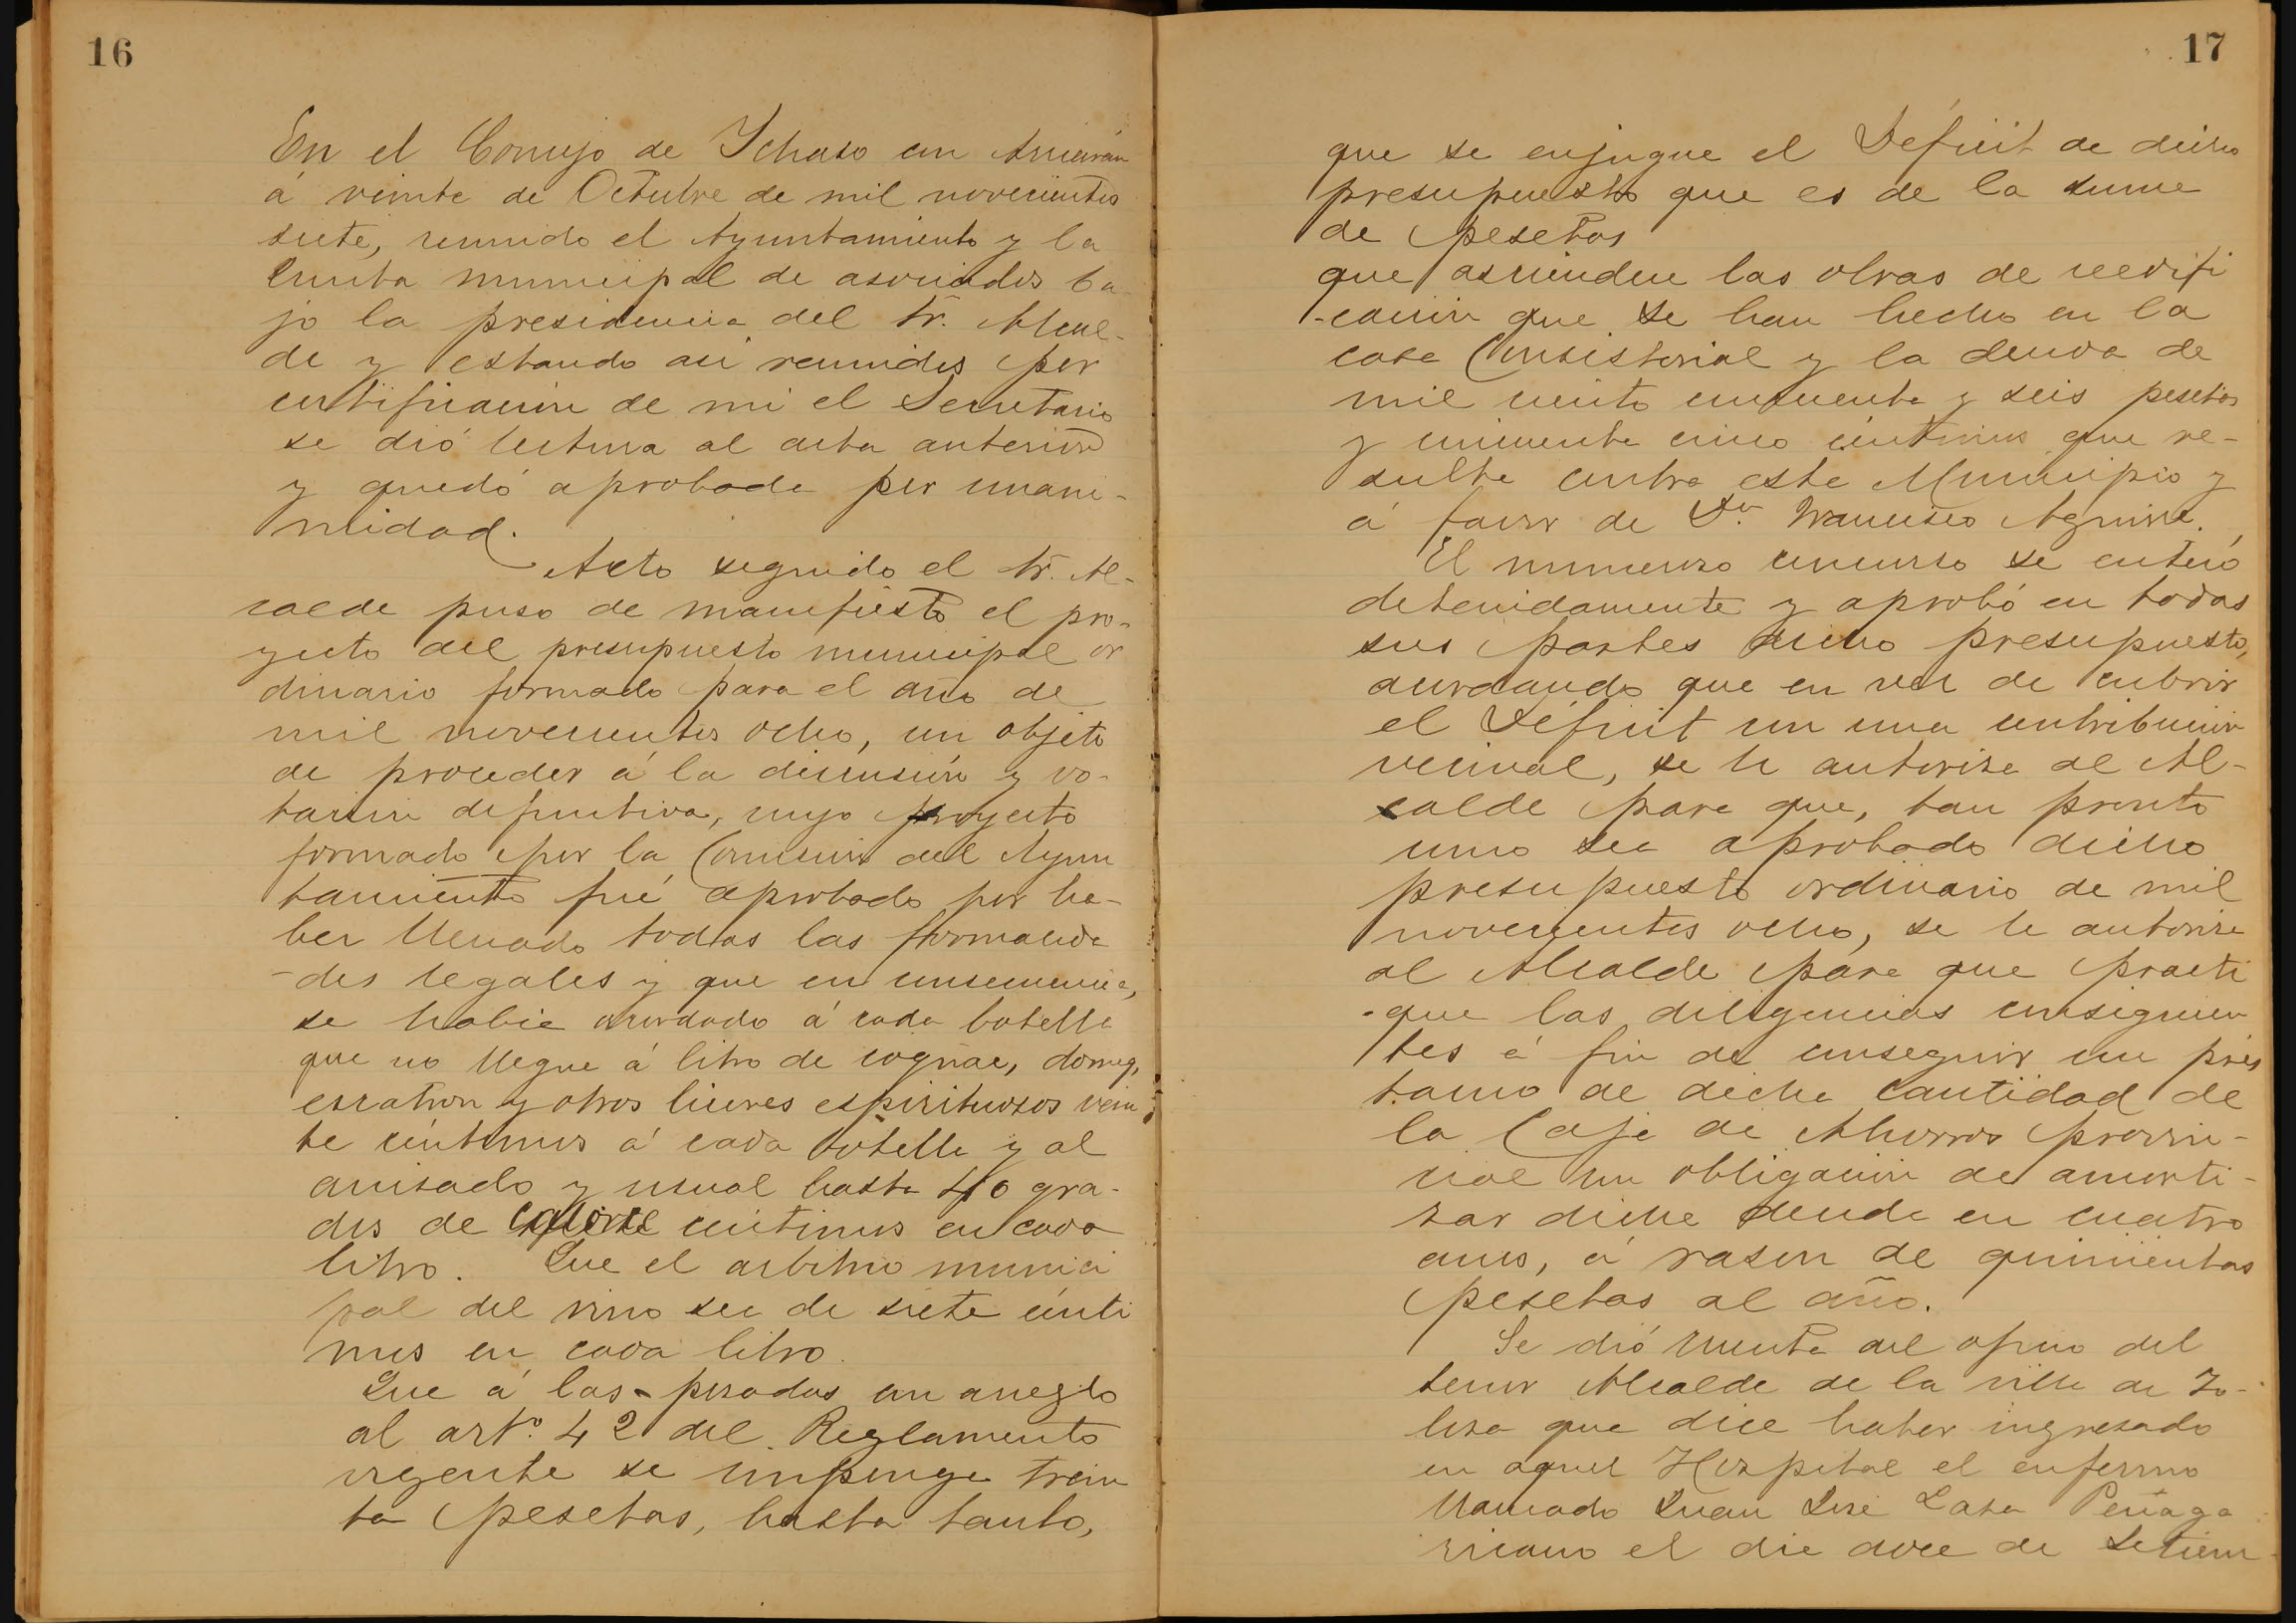 16
En el Concejo de Ichaso en Arriarán
á veinte de Octubre de mil novecientos
siete, reunido el Ayuntamiento y la
Junta municipal de asociados ba
jo la presidencia del Sr. Alcal-
de y estando asi reunidos por
certificación de mi el Secretario
se dió lectura al acta anterior
y quedó aprobada por unani-
midad.
Acto seguido el Sr. Al-
calde puso de manifiesto el pro-
yecto del presupuesto municipal or
dinario formado para el año de
mil novecientos ocho, con objeto
de proceder á la discusión y vo-
tación definitiva, cuyo proyecto
formado por la Comisión del Ayun
tamiento fué aprobado por ha-
ber llenado todas las formalida
-des legales y que en consecuencia,
se había acordado á cada botella
que no llegue á litro de cognac, domeq,
escatron y otros licores espirituosos vein
te céntimos á cada botella y al
anisado y usual hasta 40 gra-
dos de catorce céntimos en cada
litro. Que el arbitrio munici
pal del vino sea de siete cénti
mos en cada litro.
Que á las pesadas con arreglo
al artº. 42 del Reglamento
vigente se imponga trein
ta pesetas, hasta tanto,
17
que se enjugue el Déficit de dicho
presupuesto que es de la suma
de pesetas
que ascienden las obras de reedifi
-cación que se han hecho en la
casa Consistorial y la deuda de
mil ciento cincuenta y seis pesetas
y cincuenta cinco céntimos que re-
sulta contra este Municipio y
á favor de Dn. Francisco Aguirre.
El numeroso concurso se enteró
detenidamente y aprobó en todas
sus partes dicho presupuesto,
acordando que en vez de cubrir
el Déficit con una contribución
vecinal, se le autorice al Al-
calde para que, tan pronto
como sea aprobado dicho
presupuesto ordinario de mil
novecientos ocho, se le autorice
al Alcalde para que practi
-que las diligencias consiguien
tes á fin de conseguir un prés
tamo de dicha cantidad de
la Caja de Ahorros provin-
cial con obligación de amorti-
zar dicha deuda en cuatro
años, á razon de quinientas
pesetas al año.
Se dió cuenta del oficio del
Señor Alcalde de la villa de To-
losa que dice haber ingresado
en aquel Hospital el enfermo
llamado Juan José Lasa Peñaga
ricano el dia doce de Setiem